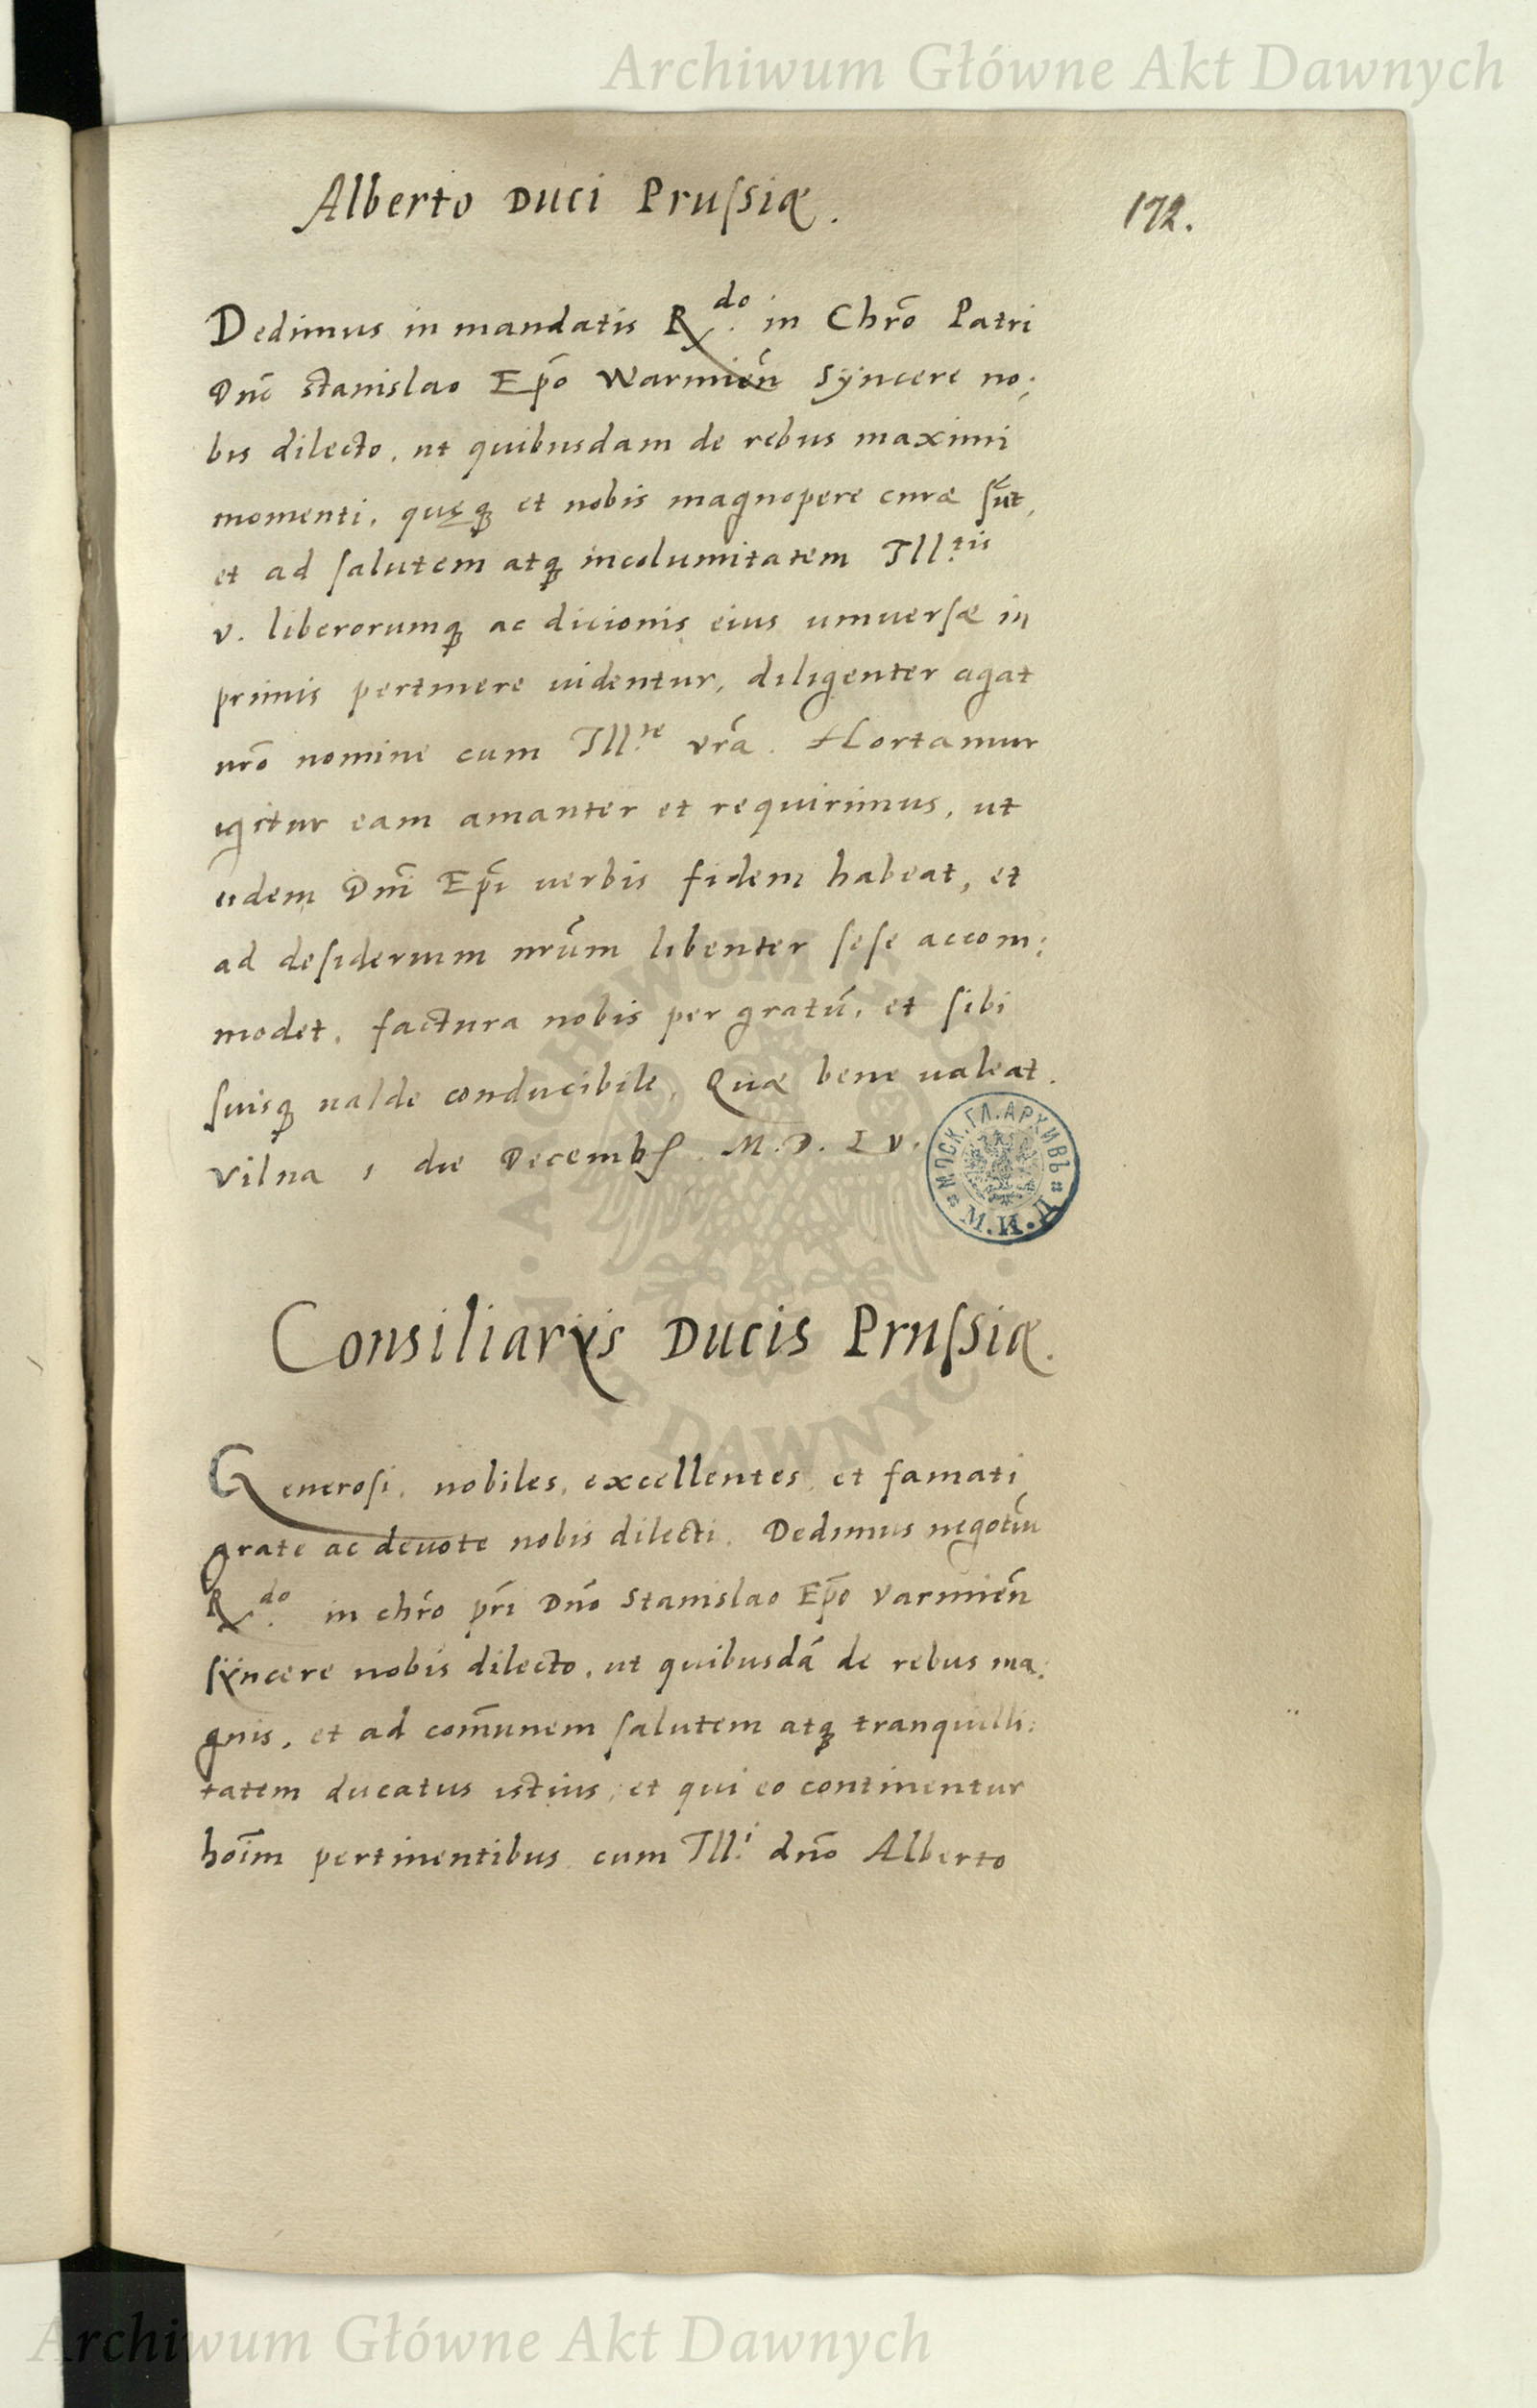 Archiwum Główne Akt Dawnych
Alberto Duci Prussiæ.
172.
Dedimus in mandatis R.do in Chrō Patri
Dnō Stanislao Epō Warmiēn Syncere no:
bis dilecto, ut quibusdam de rebus maximi
momenti, quęq; et nobis magnopere curæ sūt,
et ad salutem atq; incolumitatem Ill.tis
v. liberorumq; ac dicionis eius universæ in
primis pertinere videntur, diligenter agat
nrō nomine cum Ill.te vrā. Hortamur
igitur eam amanter et requirimus, ut
iidem Dnī Epī verbis fidem habeat, et
ad desiderium nrūm libenter sese accom:
modet, factura nobis per gratū, et sibi
suisq; valde conducibile, Quæ bene valeat.
Vilna 1 die Decemb. M.D.LV.
МОСК.ГЛ.АРХИВЪ М.И.Д
Consiliarijs Ducis Prussiæ.
Generosi, nobiles, excellentes, et famati
grate ac devote nobis dilecti. Dedimus negotiū
R.do in chrō prī Dnō Stanislao Epō Varmiēn
syncere nobis dilecto, ut quibusdā de rebus ma:
gnis, et ad com̄unem salutem atq; tranquilli:
tatem ducatus istius, et qui eo continentur
hoīm pertinentibus cum Ill.i dnō Alberto
Archiwum Główne Akt Dawnych